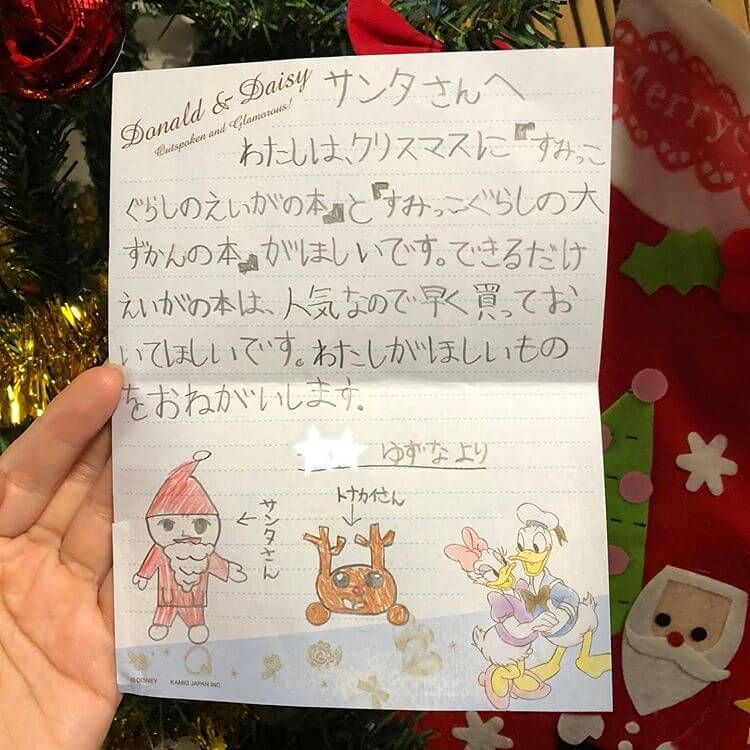 Donald & Daisy
Outspoken and Glamorous!
サンタさんへ
わたしは、クリスマスに『すみっこ
ぐらしのえいがの本』と『すみっこぐらしの大
ずかんの本』がほしいです。できるだけ
えいがの本は、人気なので早く買ってお
いてほしいです。わたしがほしいもの
をおねがいします。
ゆずなより
サンタさん
トナカイさん
© DISNEY KAMIO JAPAN INC.
Merry